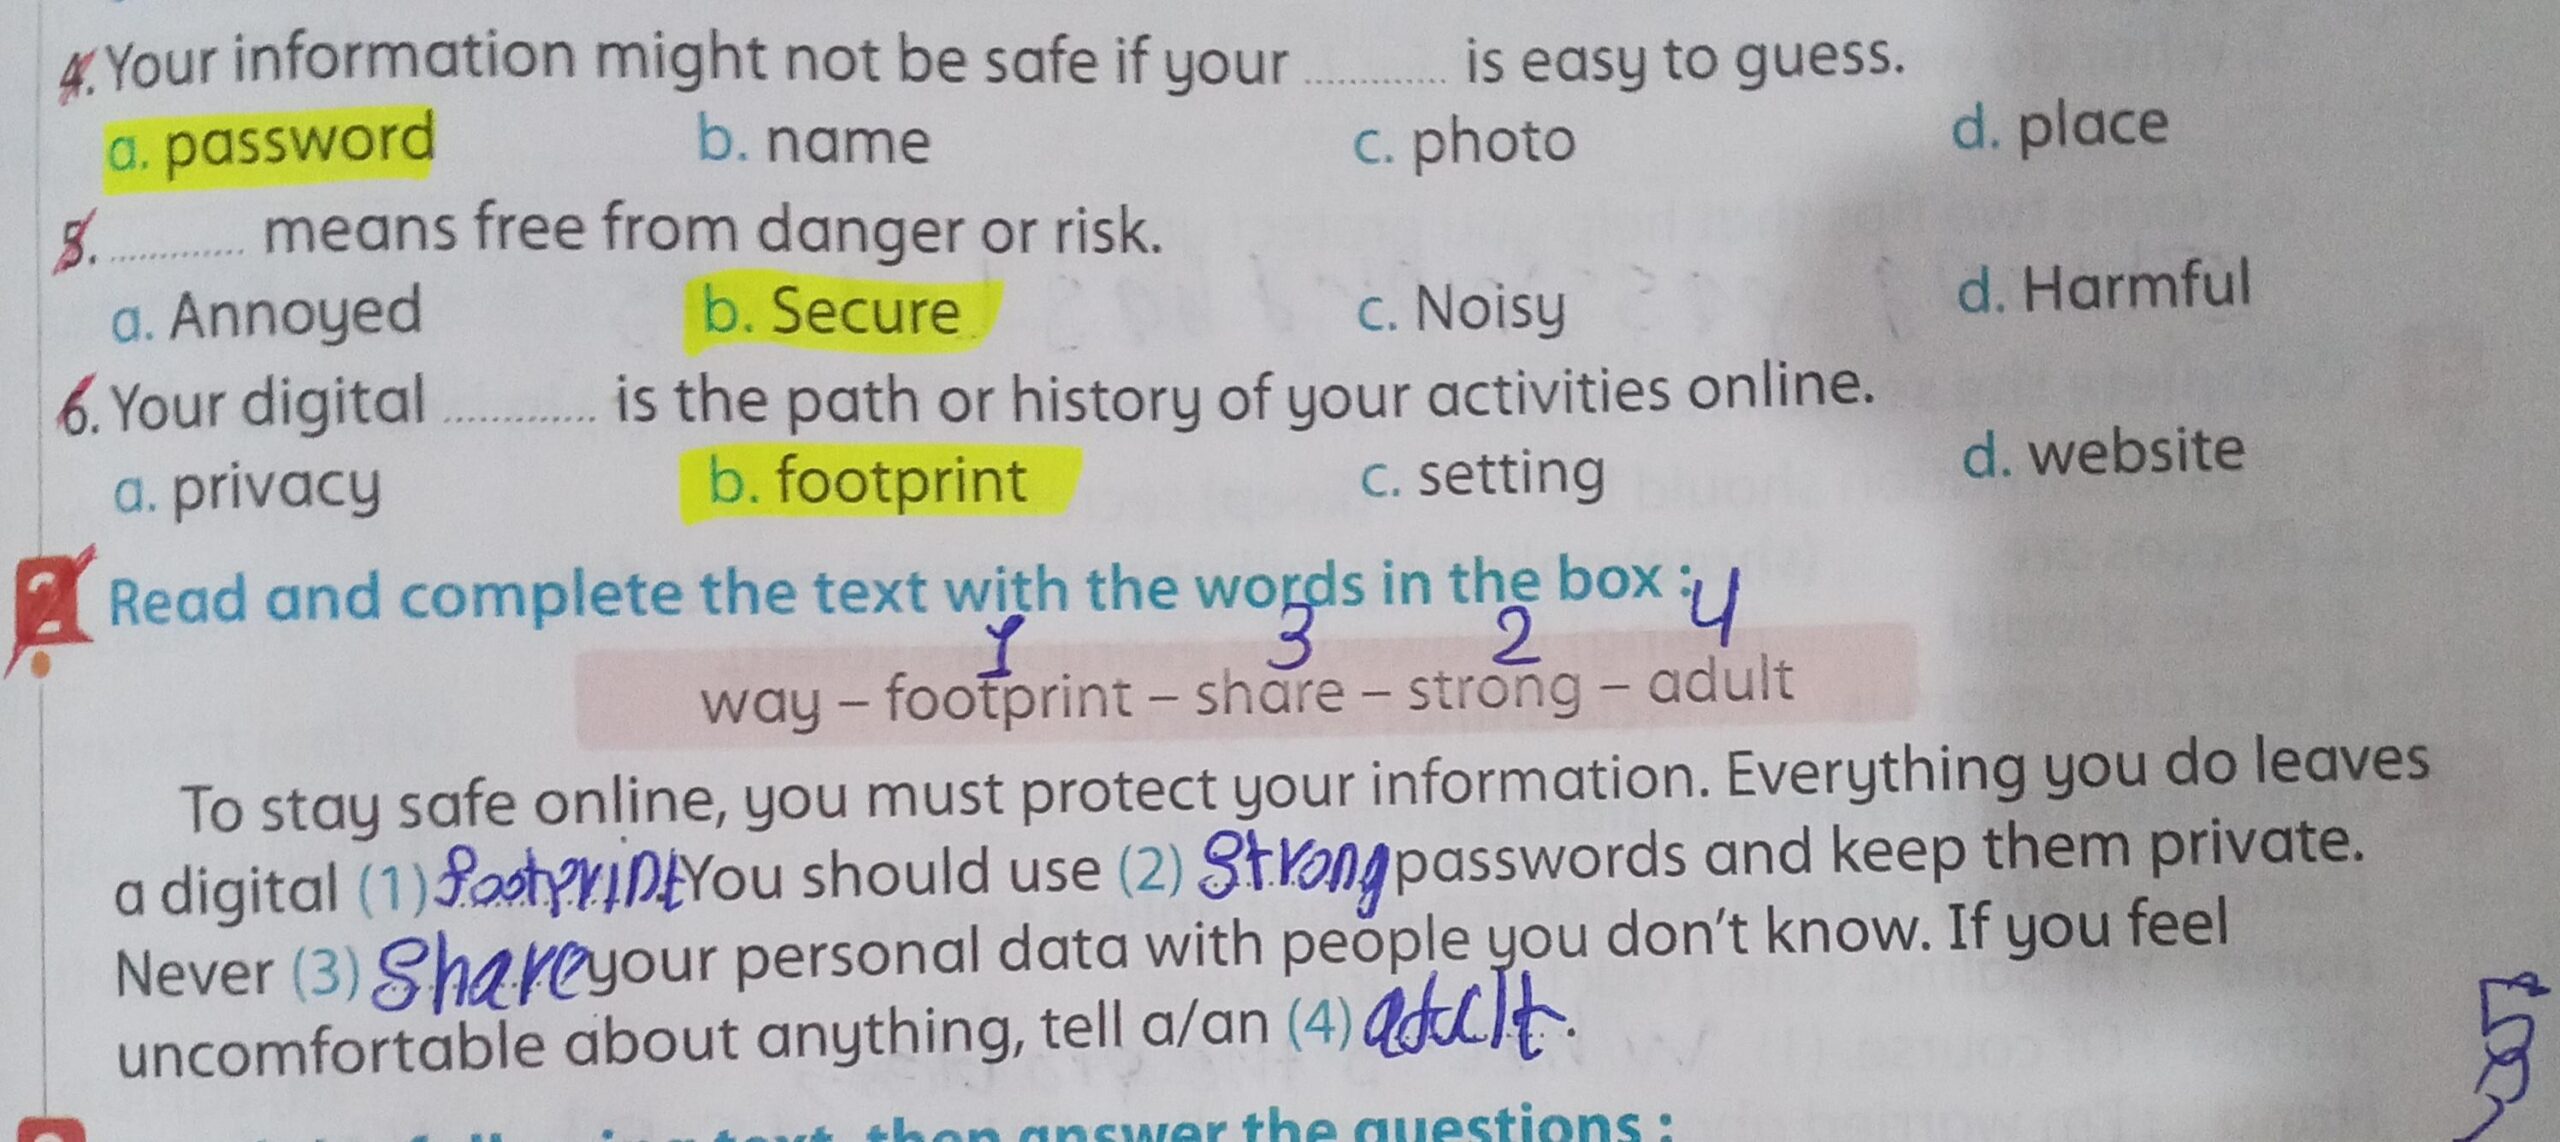 4. Your information might not be safe if your ............ is easy to guess.
a. password b. name c. photo d. place
5. ............ means free from danger or risk.
a. Annoyed b. Secure c. Noisy d. Harmful
6. Your digital ............ is the path or history of your activities online.
a. privacy b. footprint c. setting d. website
2 Read and complete the text with the words in the box :
1 3 2 4
way – footprint – share – strong – adult
To stay safe online, you must protect your information. Everything you do leaves
a digital (1) footprint You should use (2) Strong passwords and keep them private.
Never (3) Share your personal data with people you don't know. If you feel
uncomfortable about anything, tell a/an (4) adult.
text, then answer the questions :